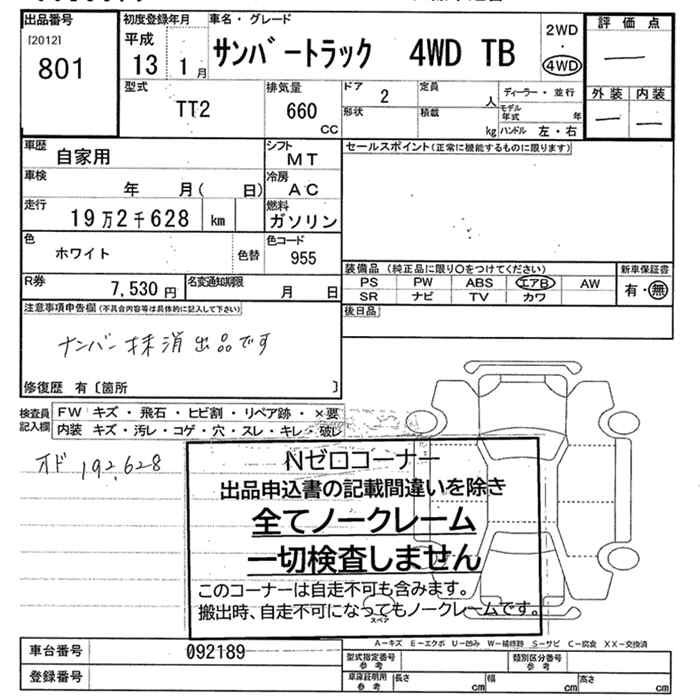 出品番号
[2012]
801
初度登録年月
平成
13 1月
車名・グレード
サンバートラック 4WD TB
2WD
・
4WD
評価点
—
外装 内装
— —
型式
TT2
排気量
660
CC
ドア
2
定員
人
ディーラー・並行
形状
積載
kg
モデル年式 年
ハンドル 左・右
車歴
自家用
シフト
MT
セールスポイント(正常に機能するものに限ります)
車検
年 月( 日)
冷房
AC
走行
19万2千628 km
燃料
ガソリン
色
ホワイト
色替
色コード
955
R券
7,530円
名変通知期限
月 日
装備品 (純正品に限り○をつけてください)
PS PW ABS エアB AW
SR ナビ TV カワ
新車保証書
有・無
後日品
注意事項申告欄(不具合内容等は具体的に記入して下さい)
ナンバー抹消出品です
修復歴 有〔箇所 〕
検査員記入欄
FW キズ・飛石・ヒビ割・リペア跡・×要
内装 キズ・汚レ・コゲ・穴・スレ・キレ・破レ
オド 192,628
Nゼロコーナー
出品申込書の記載間違いを除き
全てノークレーム
一切検査しません
このコーナーは自走不可も含みます。
搬出時、自走不可になってもノークレームです。
スペア
A－キズ E－エクボ U－凹み W－補修跡 S－サビ C－腐食 XX－交換済
車台番号
092189
登録番号
型式指定番号 参考
類別区分番号 参考
車庫証明用 参考
長さ cm
幅 cm
高さ cm